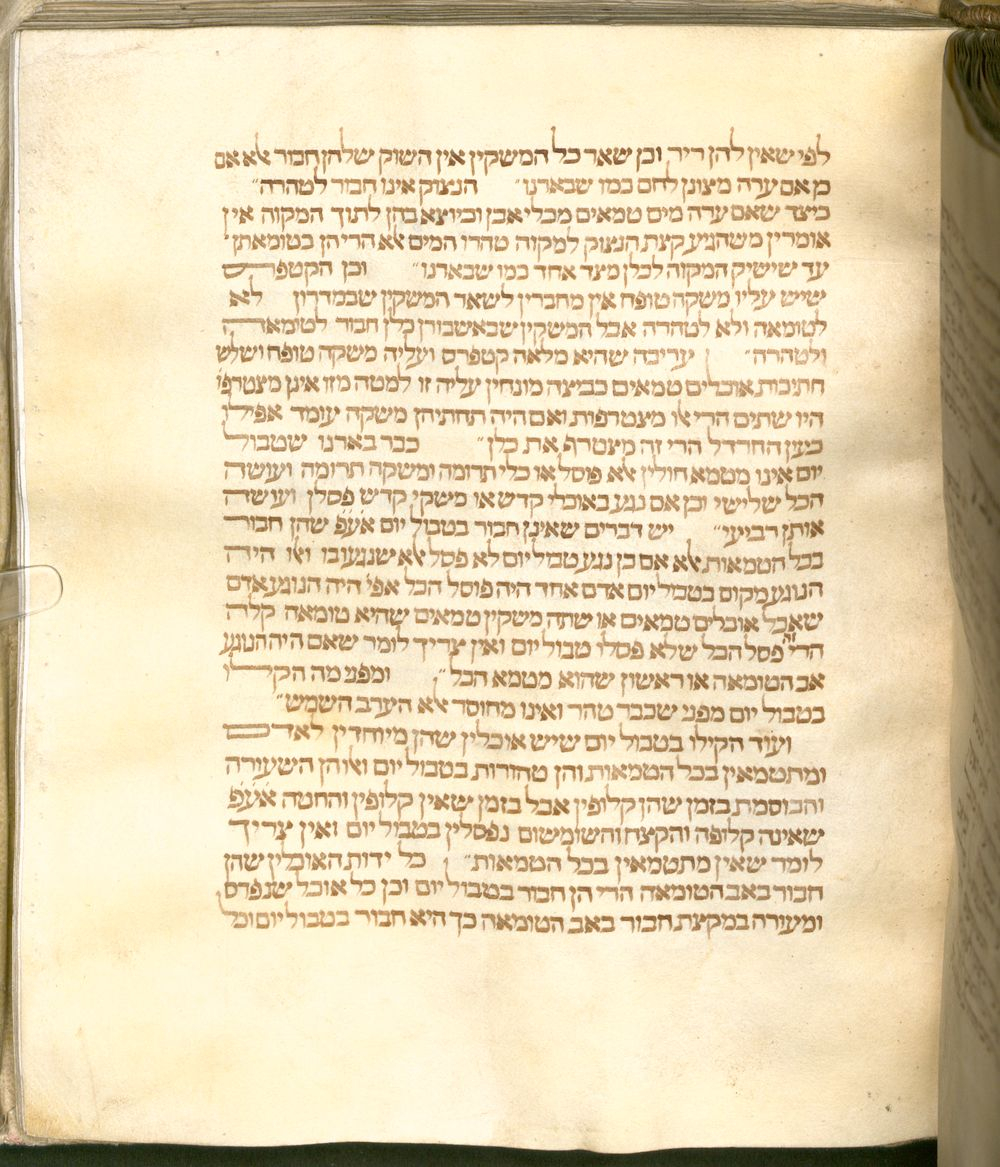 לפי שאין להן ריר וכן שאר כל המשקין אין השוק שלהן חבור אלא אם
כן אם ערה מצונן לחם כמו שבארנו״ הנצוק אינו חבור לטהרה״
כיצד שאם ערה מים טמאים מכלי אבן וכיוצא בהן לתוך המקוה אין
אומרין משהגיע קצת הנצוק למקוה טהרו המים אלא הרי הן בטומאתן״
עד שישיק המקוה לכלן מצד אחד כמו שבארנו״ וכן הקטפרס
שיש עליו משקה טופח אין מחברין לשאר המשקין שבמדרון לא
לטומאה ולא לטהרה אבל המשקין שבאשבורן כלן חבור לטומאה
ולטהרה״ עריבה שהיא מלאה קטפרס ועליה משקה טופח ושלש
חתיכות אוכלים טמאים כביצה מונחין עליה זו למטה מזו אינן מצטרפי׳
היו שתים הרי אלו מצטרפות ואם היה תחתיהן משקה עומד אפילו
כעין החרדל הרי זה מצטרף את כלן״ כבר בארנו שטבול
יום אינו מטמא חולין אלא פוסל או כלי תרומה ומשקה תרומה ועושה
הכל שלישי וכן אם נגע באוכלי קדש או משקי קדש פסלן ועושה
אותן רביעי״ יש דברים שאינן חבור בטבול יום אע״פ שהן חבור
בכל הטמאות אלא אם כן נגע טבול יום לא פסל אלא שנגעו בו ואלו היה
הנוגע מקום בטבול יום אדם אחד היה פוסל הכל אפי׳ היה הנוגע אדם
שאכל אוכלים טמאים או שתה משקין טמאים שהיא טומאה קלה
הרי זה פסל הכל שלא פסלו טבול יום ואין צריך לומר שאם היה הנוגע
אב הטומאה או ראשון שהוא מטמא הכל״ ומפני מה הקלו
בטבול יום מפני שכבר טהר ואינו מחוסר אלא הערב השמש״
ועוד הקילו בטבול יום שיש אוכלין שהן מיוחדין לאדם
ומתטמאין בכל הטמאות והן טהורות בטבול יום ואלו הן השעורה
והכוסמת בזמן שהן קלופין אבל בזמן שאין קלופין והחטה אע״פ
שאינה קלופה והקצח והשומשום נפסלין בטבול יום ואין צריך
לומר שאין מתטמאין בכל הטמאות״ כל ידות האוכלין שהן
חבור באב הטומאה הרי הן חבור בטבול יום וכן כל אוכל שנפרס
ומעורה במקצת חבור באב הטומאה כך היא חבור בטבול יום וכל